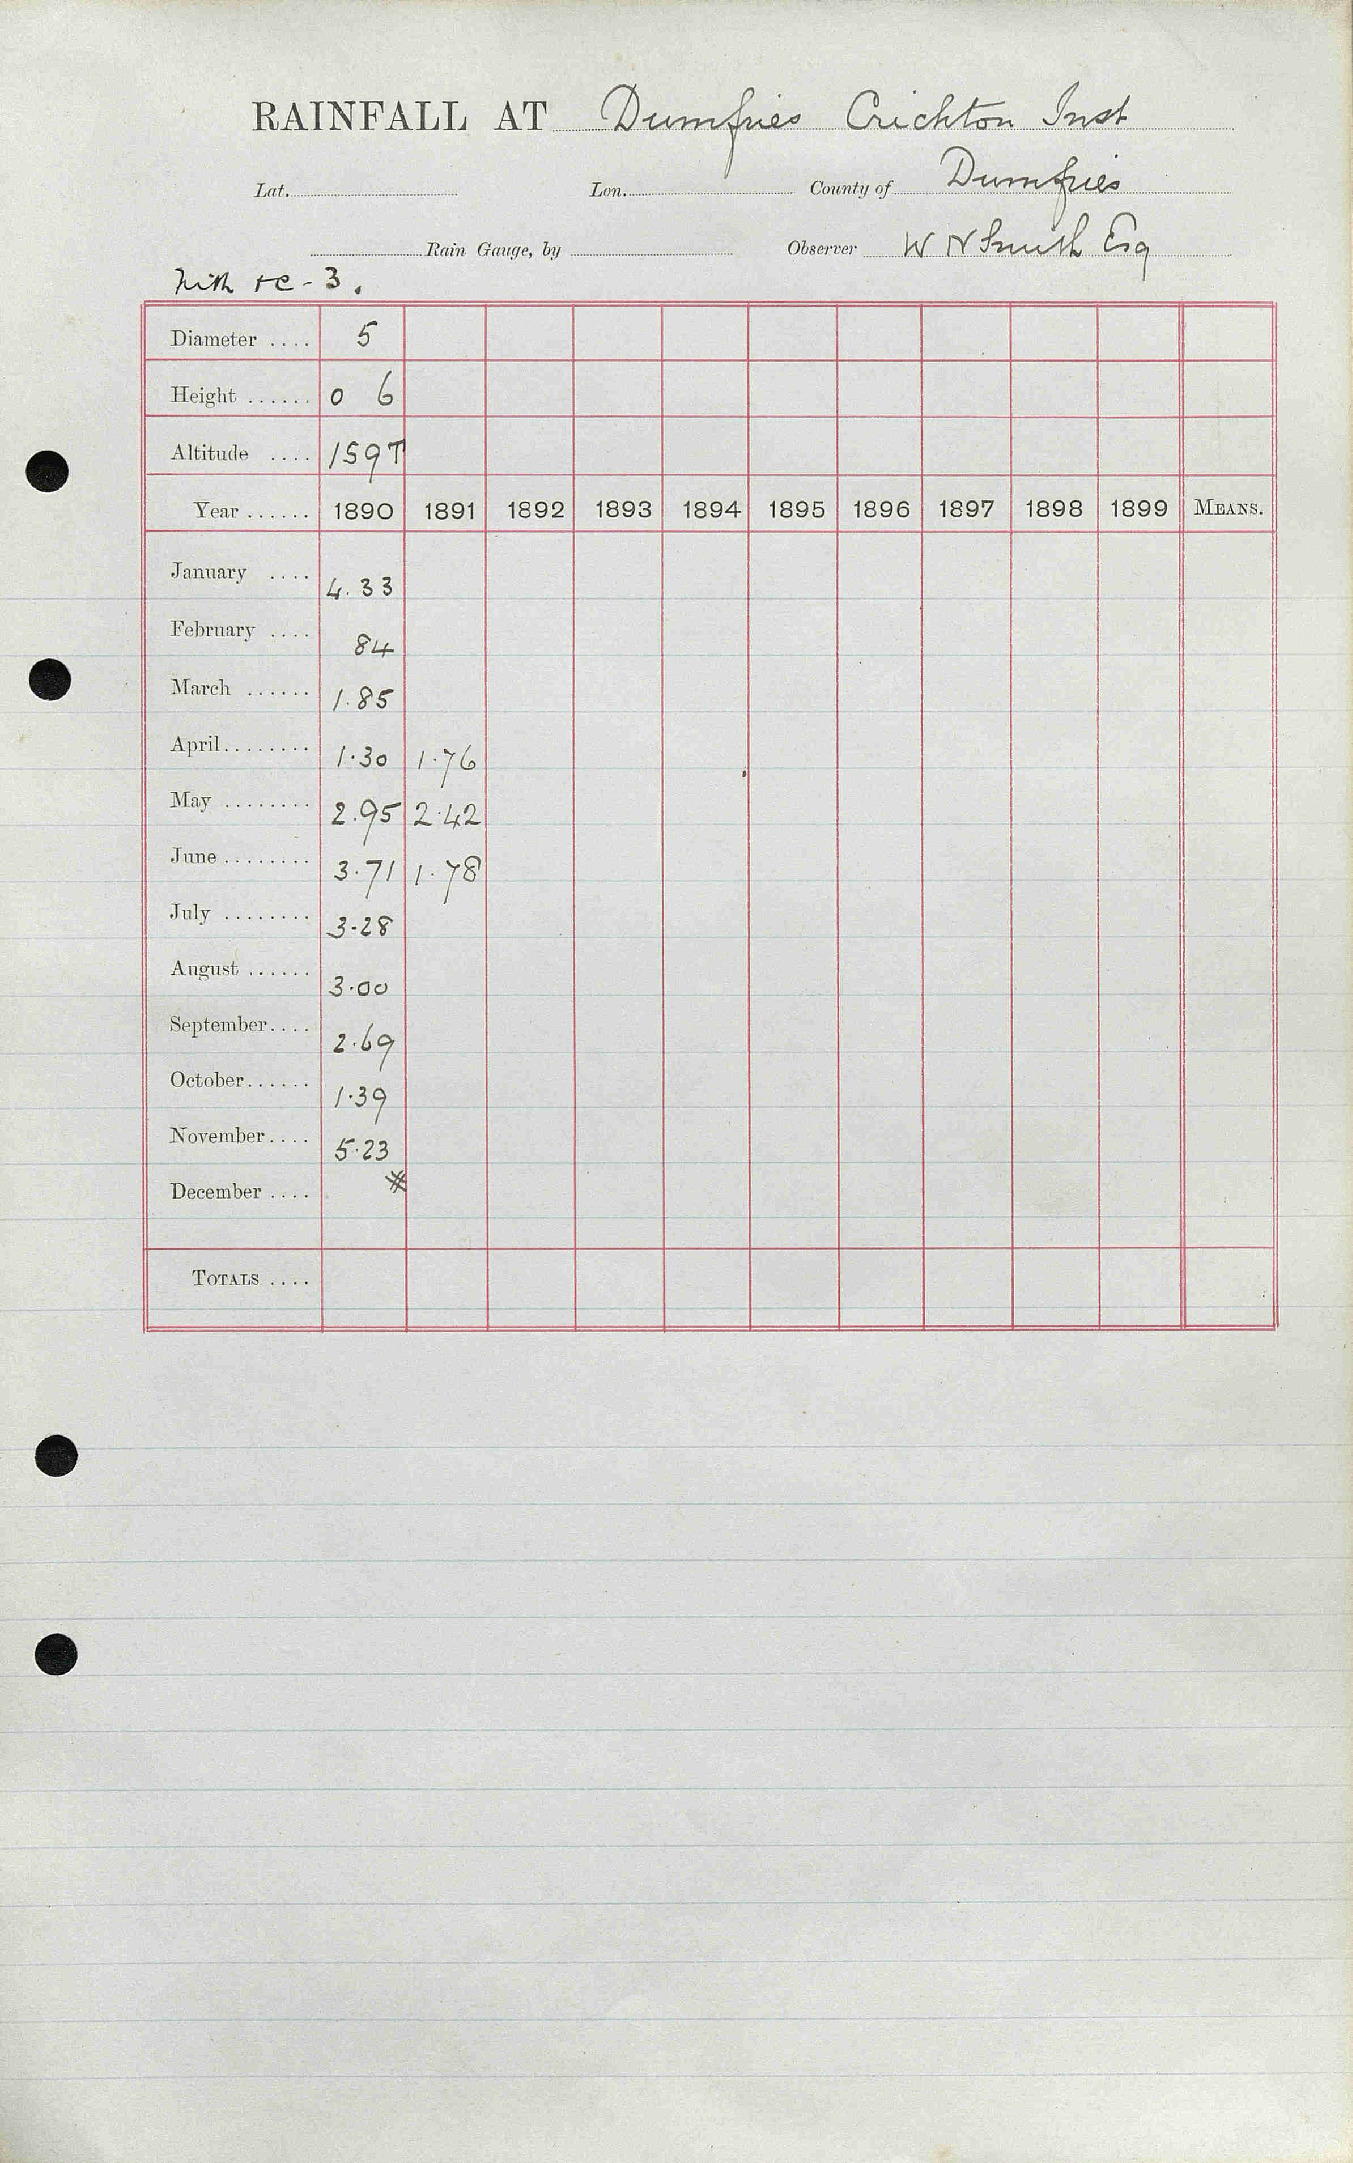 RAINFALL AT Dumfries Crichton Inst
Lat. Lon. County of Dumfries
Rain Gauge, by Observer W N Smith Esq
Nith &c - 3.
Diameter .... 5
Height ...... 0 6
Altitude .... 159T
Year ...... 1890 1891 1892 1893 1894 1895 1896 1897 1898 1899 MEANS.
January .... 4.33
February .... 84
March ...... 1.85
April ........ 1.30 1.76
May ........ 2.95 2.42
June ........ 3.71 1.78
July ........ 3.28
August ...... 3.00
September .... 2.69
October ...... 1.39
November .... 5.23
December .... #
TOTALS ....